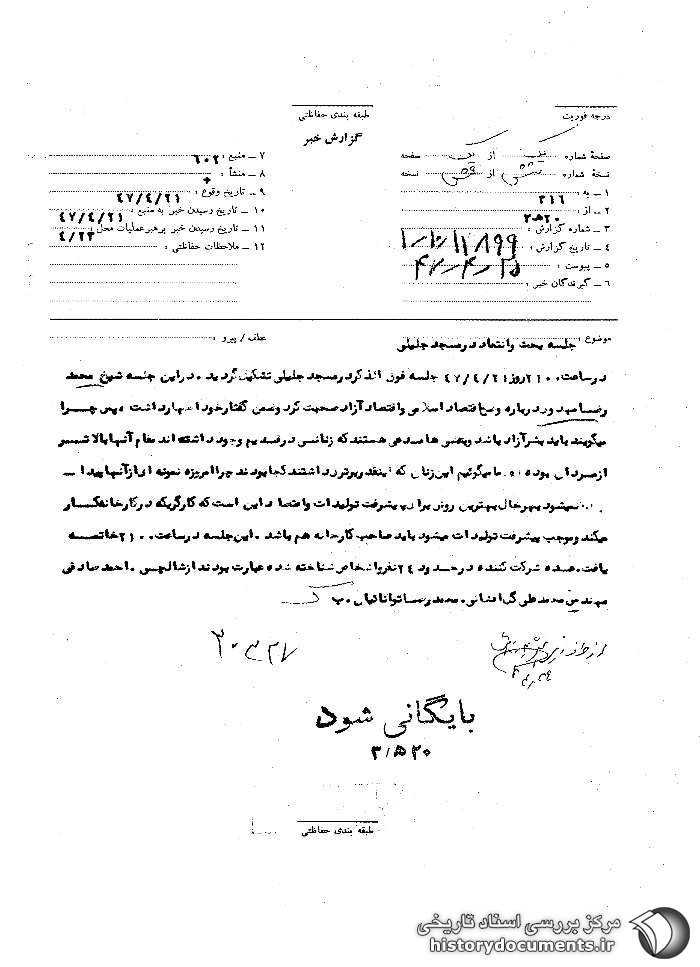 طبقه بندی حفاظتی
درجه فوریت
گزارش خبر
صفحهٔ شماره یک از یک صفحه
نسخهٔ شماره شش از شش نسخه
۱ ــ به : ۳۱۶
۲ ــ از : ۲۰ ه ۳
۳ ــ شماره گزارش :
۴ ــ تاریخ گزارش :
۵ ــ پیوست :
۶ ــ گیرندگان خبر :
۷ ــ منبع : ۶۰۲
۸ ــ منشأ :
۹ ــ تاریخ وقوع : ۴۷/۴/۲۱
۱۰ ــ تاریخ رسیدن خبر به منبع : ۴۷/۴/۲۱
۱۱ ــ تاریخ رسیدن خبر برهبر عملیات محل : ۴/۲۳
۱۲ ــ ملاحظات حفاظتی :
موضوع : جلسه بحث و انتقاد در مسجد جلیلی
عطف / پیرو :
در ساعت ۲۱۰۰ روز ۴۷/۴/۲۱ جلسه فوق الذکر در مسجد جلیلی تشکیل گردید . در این جلسه شیخ محمد
رضا مهدوی درباره وضع اقتصاد اسلامی و اقتصاد آزاد صحبت کرد و ضمن گفتار خود اظهار داشت پس چرا
میگویند باید بشر آزاد باشد و بعضی ها مدعی هستند که زنانی در قدیم وجود داشته اند مقام آنها بالاتر
از مردان بوده ما میگوئیم این زنان که اینقدر برتری داشتند کجا بودند چرا امروزه نمونه ای از آنها پیدا ــ
نمیشود بهرحال بهترین روش برای پیشرفت تولیدات و اقتصاد این است که کارگریکه در کارخانه کار
میکند و موجب پیشرفت تولیدات میشود باید صاحب کارخانه هم باشد . این جلسه در ساعت خاتمه
یافت . عده شرکت کننده در حدود ۲۴ نفر و اشخاص شناخته شده عبارت بودند از شالچی . احمد صادقی
مهندس محمدعلی گل افشانی . محمدرضا توانائیان .
بایگانی شود
۲۰ ه ۳
طبقه بندی حفاظتی
مرکز بررسی اسناد تاریخی
historydocuments.ir